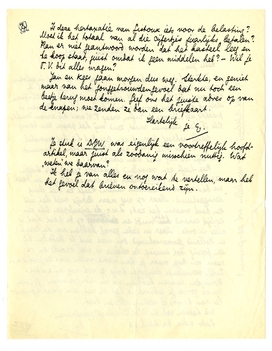 Is deze hertaxatie van Eerde iets voor de belasting?
Moet ik het totaal van al die cijfertjes jaarlijks betalen?
Kan er niet geantwoord worden dat het kasteel leeg en
te koop staat, juist omdat ik geen middelen heb? - Wil je
F.V. dit alles vragen?
Jan en Kees gaan morgen dus weg. Sterkte, en geniet
maar van het gevoel dat nu toch een
beetje terug moet komen. Geef ons het juiste adres op van
de knapen; we zenden ze dan een briefkaart
Hartelijk
Je stuk in was eigenlijk een voortreffelijk hoofd-
artikel, maar juist als zoodanig misschien nuttig. Wat
weten we daarvan?
Ik heb je van alles en nog wat te vertellen, maar heb
het gevoel dat brieven ontoereikend zijn.